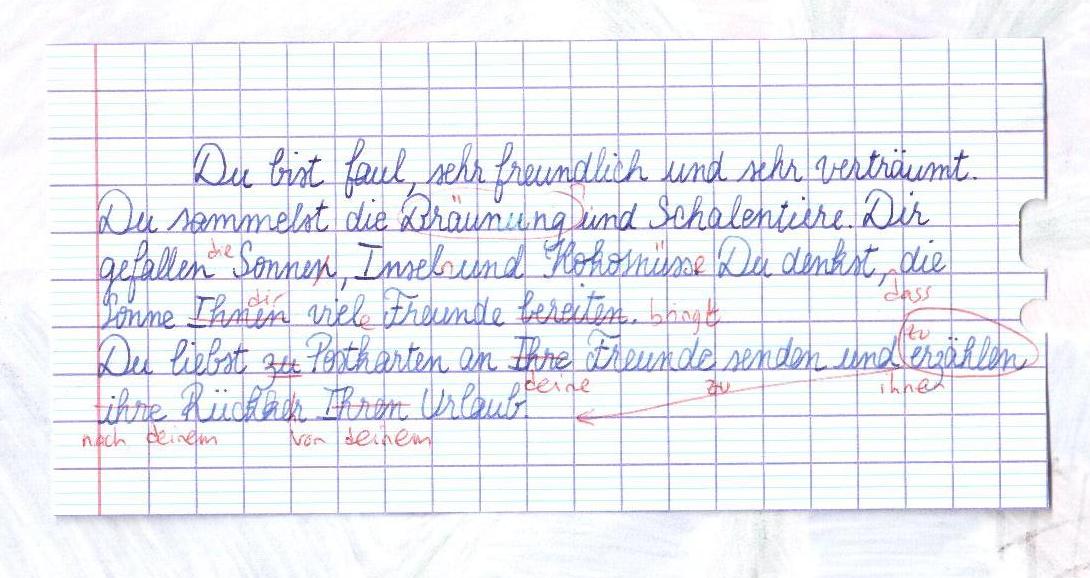 Du bist faul, sehr freundlich und sehr verträumt.
Du sammelst die Bräunung und Schalentiere. Dir
die
gefallen Sonnen, Inseln und Kokosnüsse Du denkst, die
dir dass
Sonne Ihnen viele Freunde bereiten. bringt
zu
Du liebst zu Postkarten an Ihre Freunde senden und erzählen
deine zu ihnen
ihre Rückkehr Ihren Urlaub.
nach deinem von deinem